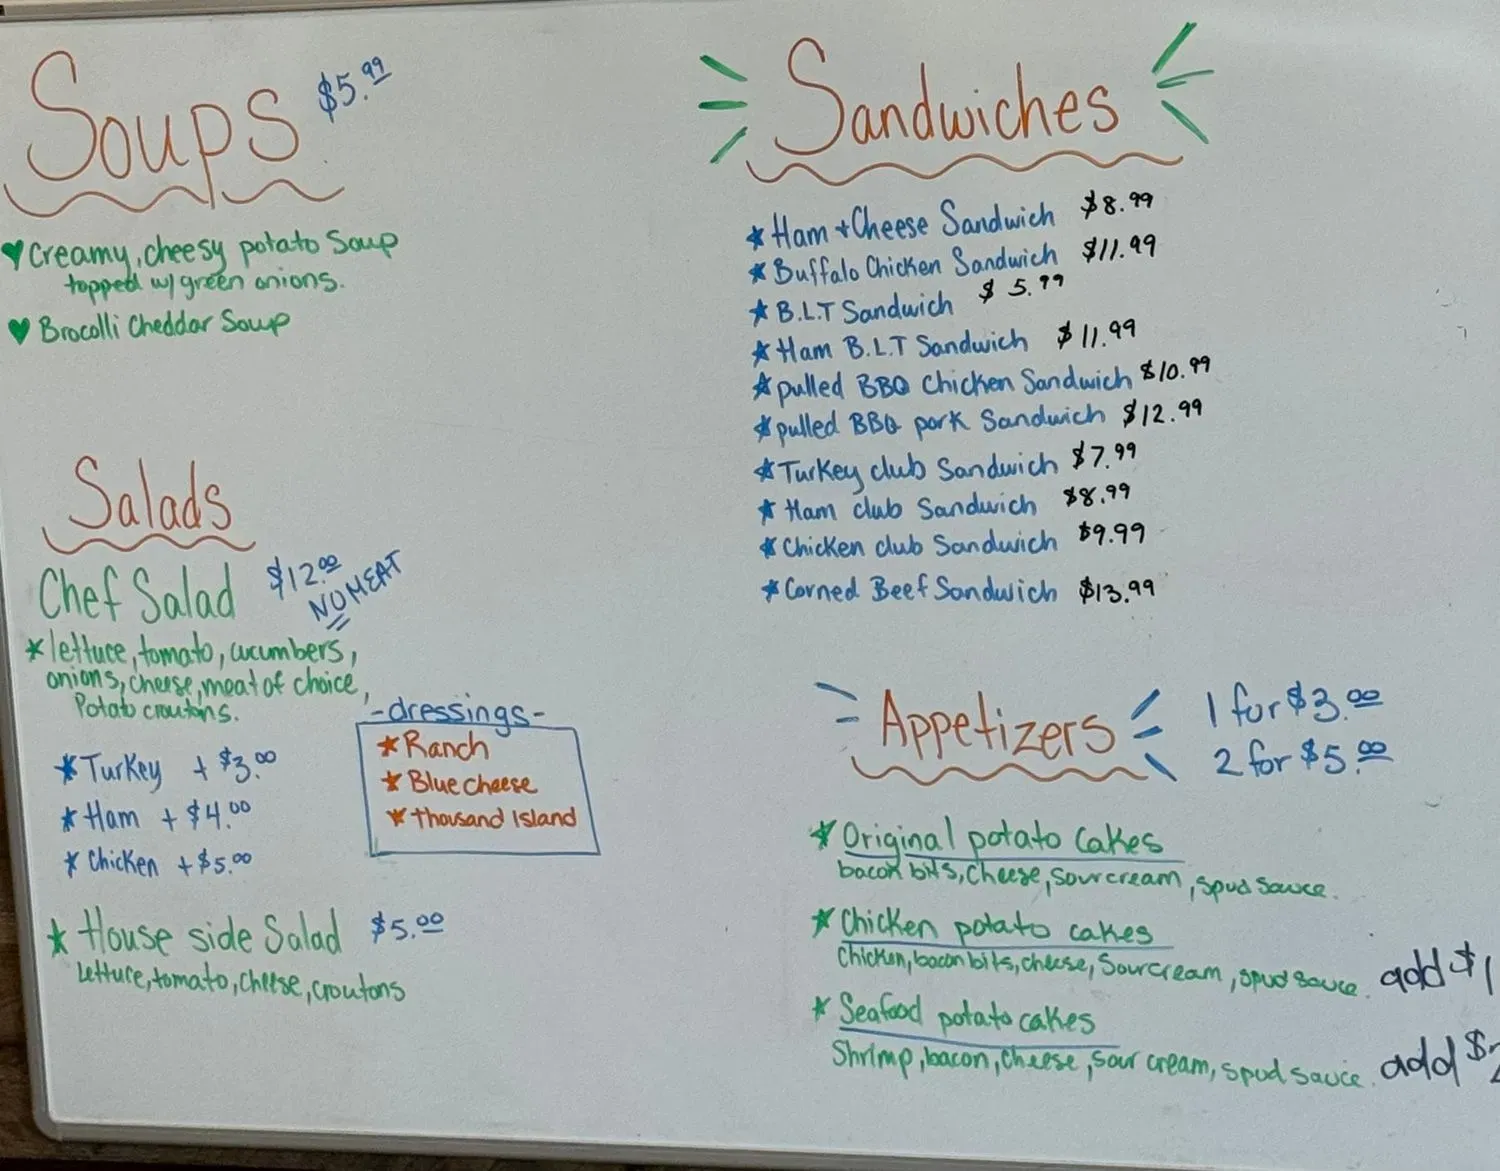 Soups $5.99
Creamy, cheesy potato Soup
topped w/ green onions.
Brocolli Cheddar Soup
Salads
Chef Salad $12.00
NO MEAT
lettuce, tomato, cucumbers,
onions, cheese, meat of choice,
Potato croutons.
Turkey + $3.00
Ham + $4.00
Chicken + $5.00
-dressings-
Ranch
Blue cheese
thousand Island
House side Salad $5.00
Lettuce, tomato, cheese, croutons
Sandwiches
Ham + Cheese Sandwich $8.99
Buffalo Chicken Sandwich $11.99
B.L.T Sandwich $5.99
Ham B.L.T Sandwich $11.99
pulled BBQ Chicken Sandwich $10.99
pulled BBQ pork Sandwich $12.99
Turkey club Sandwich $7.99
Ham club Sandwich $8.99
Chicken club Sandwich $9.99
Corned Beef Sandwich $13.99
Appetizers
1 for $3.00
2 for $5.00
Original potato Cakes
bacon bits, Cheese, Sour cream, spud sauce.
Chicken potato cakes
Chicken, bacon bits, cheese, Sour cream, spud sauce. add $1
Seafood potato cakes
Shrimp, bacon, cheese, sour cream, spud sauce. add $2